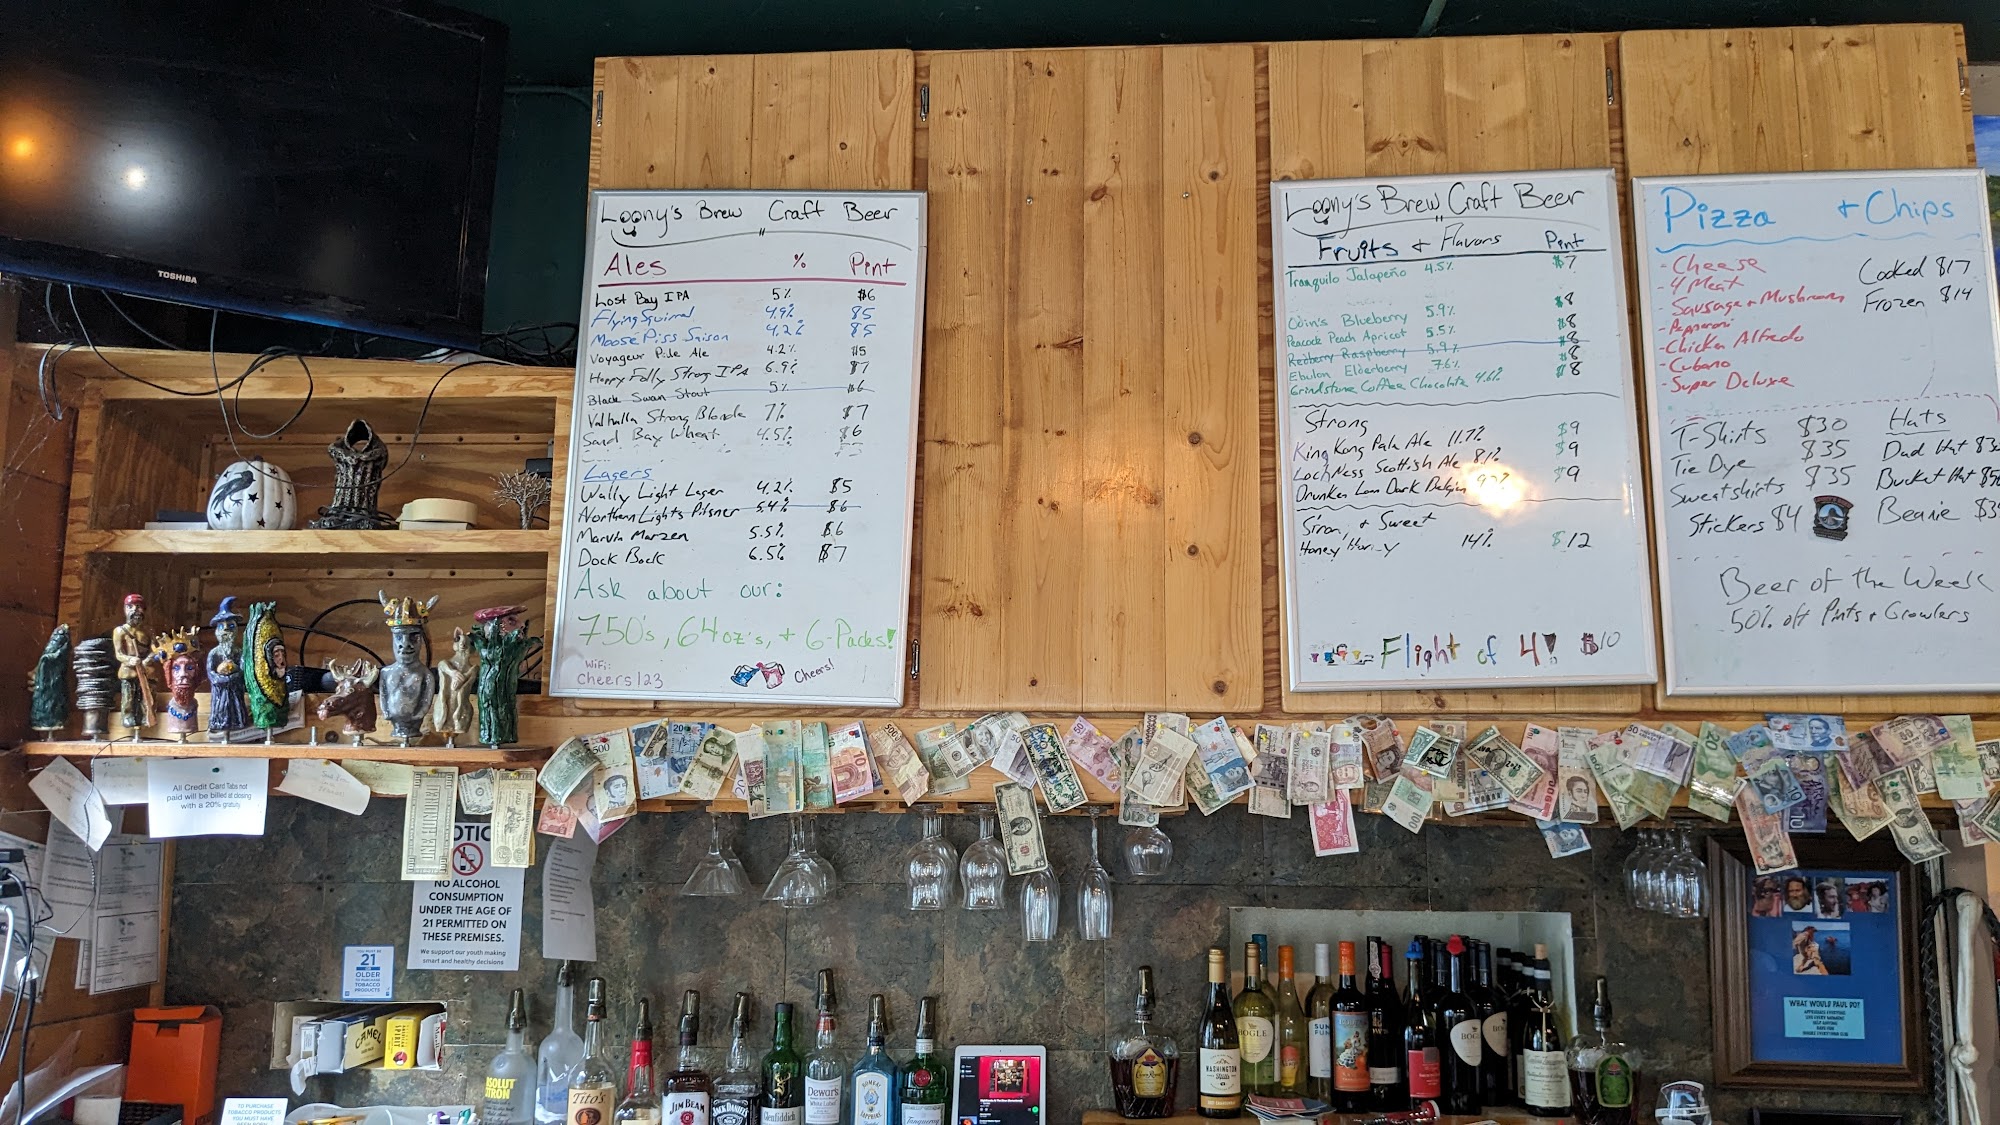 TOSHIBA
Loony's Brew Craft Beer
Ales % Pint
Lost Bay IPA 5% $6
Flying Squirrel 4.9% $5
Moose Piss Saison 4.2% $5
Voyageur Pale Ale 4.2% $5
Hoppy Folly Strong IPA 6.9% $7
Black Swan Stout 5% $6
Valhalla Strong Blonde 7% $7
Sand Bay Wheat 4.5% $6
Lagers
Wally Light Lager 4.2% $5
Northern Lights Pilsner 5.4% $6
Marvin Marzen 5.5% $6
Dock Bock 6.5% $7
Ask about our:
750's, 64oz's, + 6-Packs!
WiFi:
Cheers123
Cheers!
Loony's Brew Craft Beer
Fruits + Flavors Pint
Tranquilo Jalapeño 4.5% $7
Odin's Blueberry 5.9% $8
Peacock Peach Apricot 5.5% $8
Redberry Raspberry 5.9% $8
Ebulon Elderberry 7.6% $8
Grindstone Coffee Chocolate 4.6% $8
Strong
King Kong Pale Ale 11.7% $9
Loch Ness Scottish Ale 8.1% $9
Drunken Loon Dark Belgian $9
Strong + Sweet
Honey 14% $12
Flight of 4! $10
Pizza + Chips
- Cheese
- 4 Meat
- Sausage + Mushroom
- Pepperoni
- Chicken Alfredo
- Cubano
- Super Deluxe
Cooked $17
Frozen $14
T-Shirts $30
Tie Dye $35
Sweatshirts $35
Stickers $4
Hats
Dad Hat
Bucket Hat
Beanie
Beer of the Week
50% off Pints + Growlers
All Credit Card Tabs not
paid will be billed at closing
with a 20% gratuity
NO ALCOHOL
CONSUMPTION
UNDER THE AGE OF
21 PERMITTED ON
THESE PREMISES.
We support our youth making
smart and healthy decisions
21
OR
OLDER
TO PURCHASE
TOBACCO
PRODUCTS
CAMEL
TO PURCHASE
TOBACCO PRODUCTS
YOU MUST HAVE
Tito's
JIM BEAM
JACK DANIEL'S
Glenfiddich
Dewar's
White Label
BOMBAY
SAPPHIRE
Tanqueray
Crown Royal
WASHINGTON
HILLS
BOGLE
BOGLE
WHAT WOULD PAUL DO?